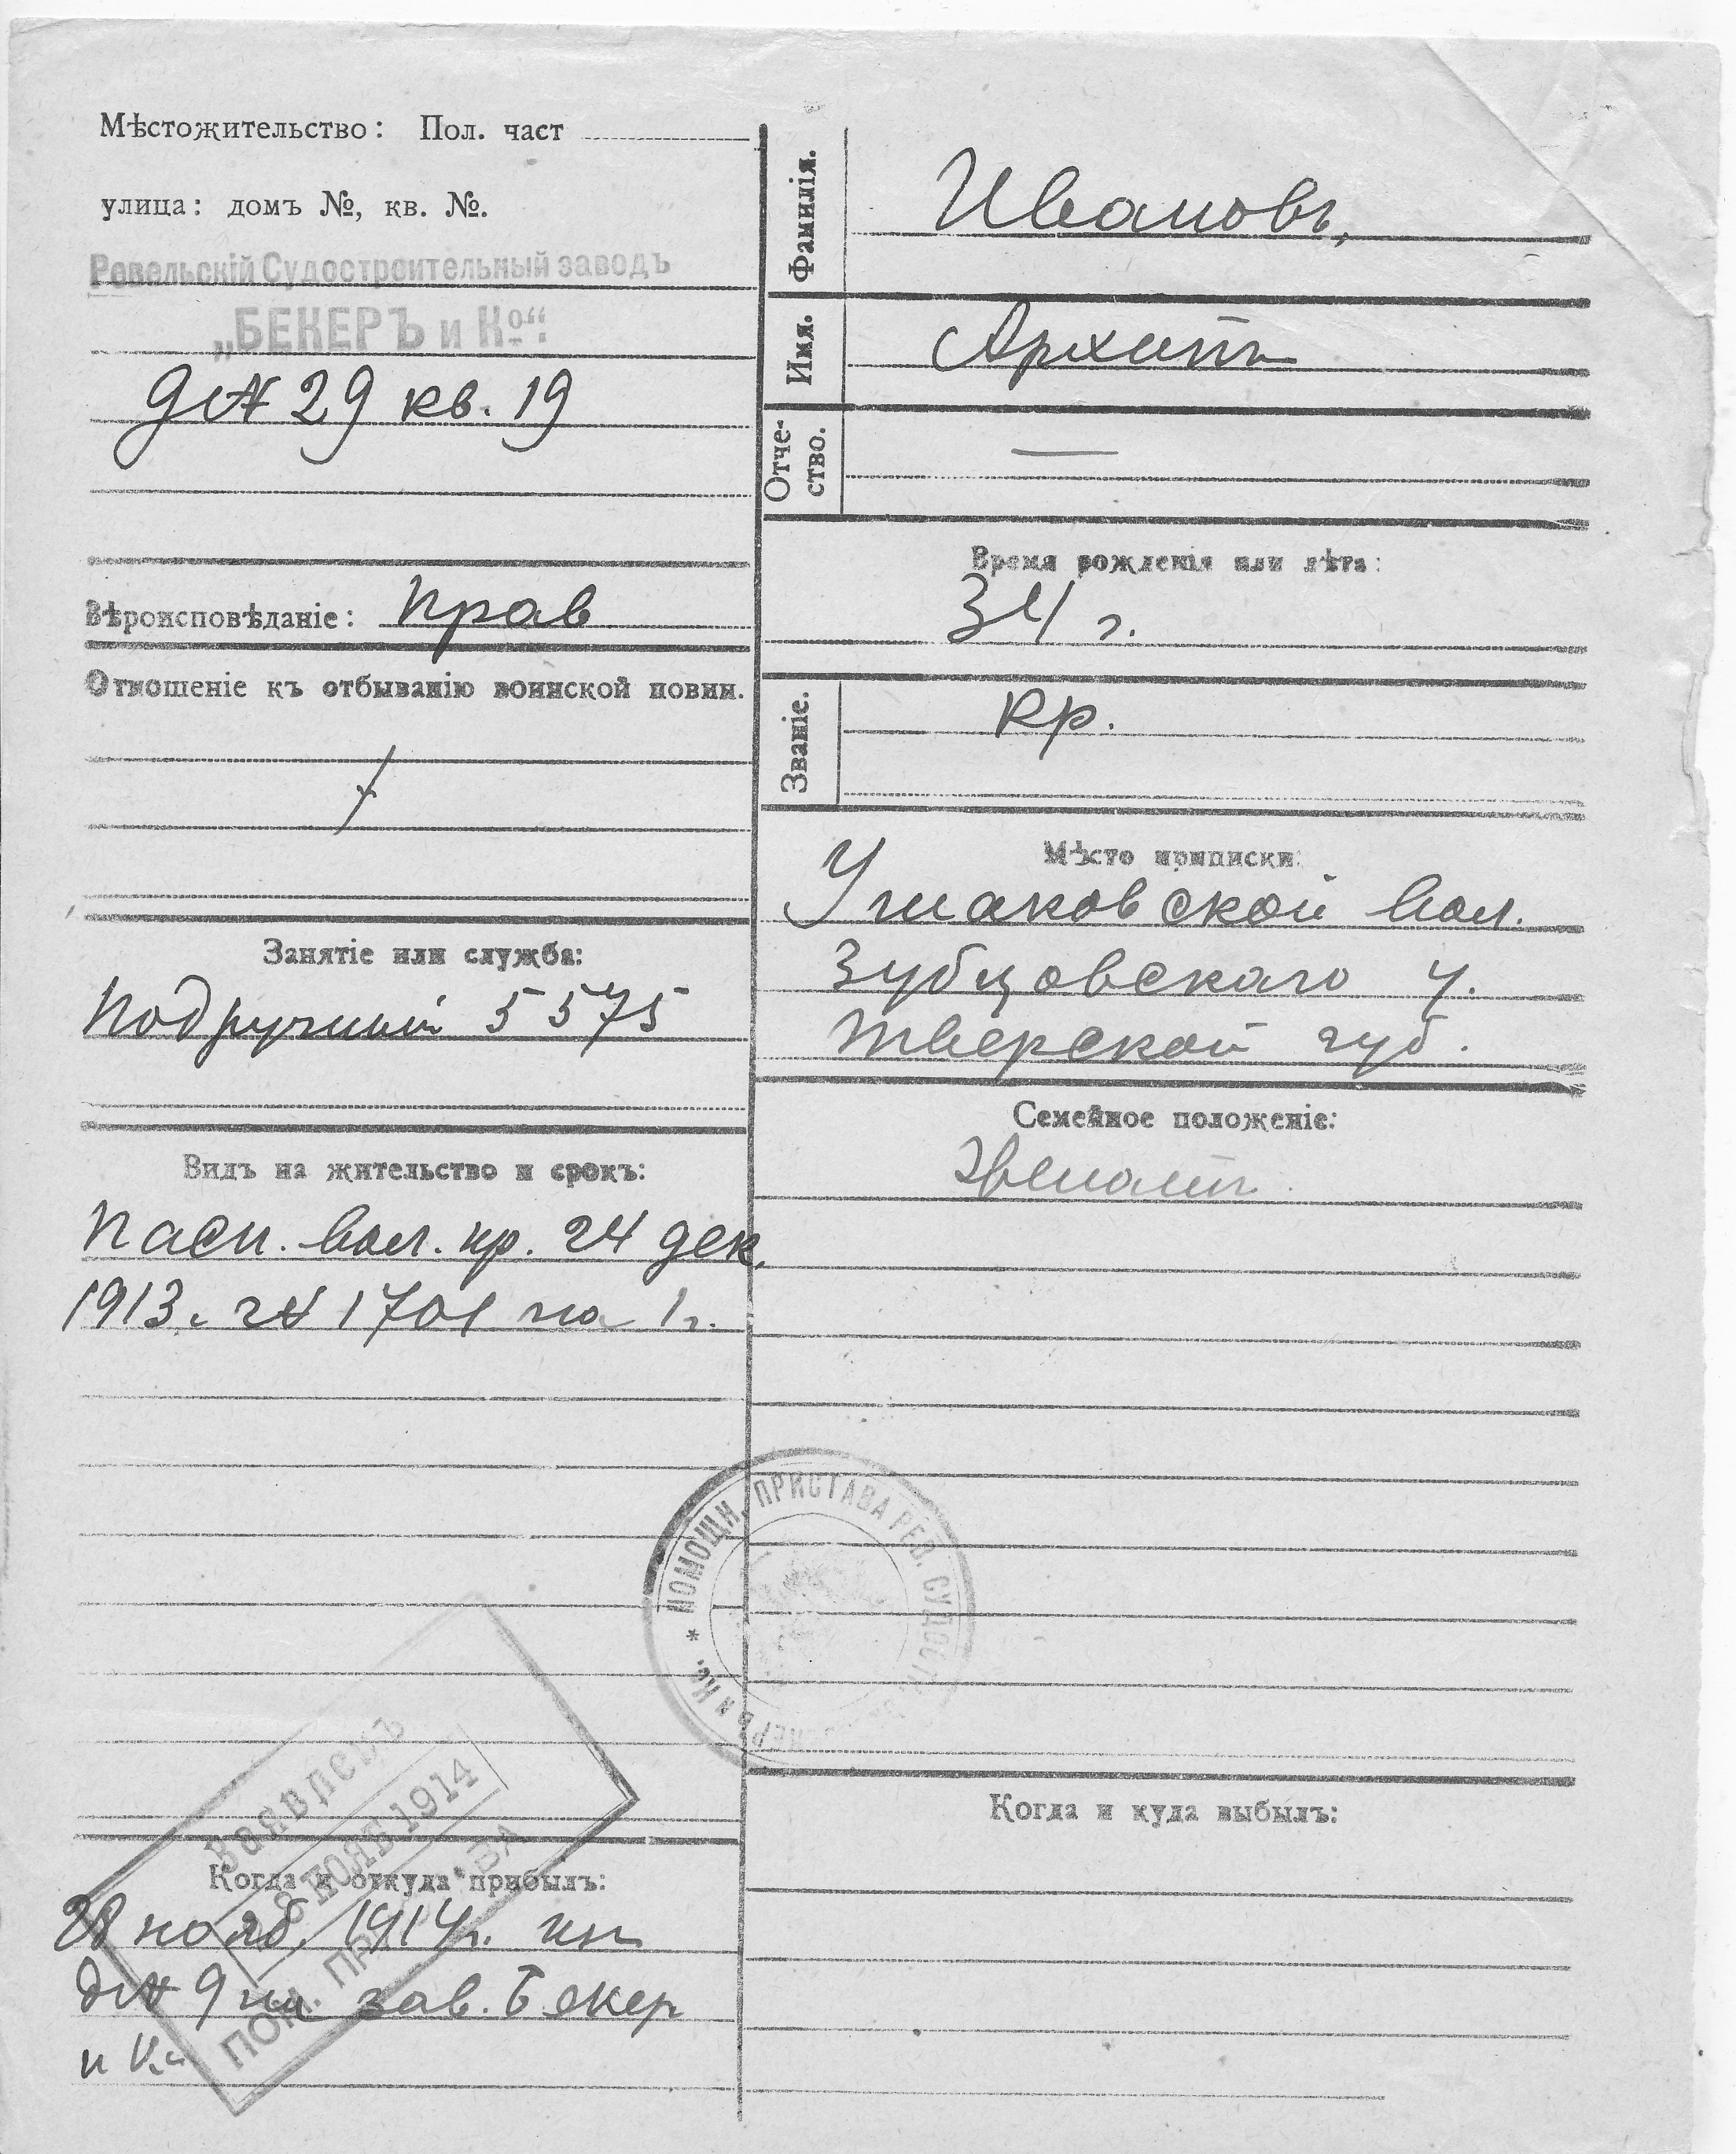 Мѣстожительство: Пол. част
улица: домъ №, кв. №.
Ревельскій Судостроительный заводъ
„БЕКЕРЪ и Кº“.
д № 29 кв. 19
Вѣроисповѣданіе: прав
Отношеніе къ отбыванію воинской повин.
Занятіе или служба:
подручный 5575
Видъ на жительство и срокъ:
Пасп. вол. пр. 24 дек.
1913. г № 1701 на 1 г.
Заявленъ
28 НОЯБ 1914
ПОМ. ПРИСТАВА
Когда и откуда прибылъ:
28 нояб. 1914 г. изъ
д № 9 на зав. Бекер
и Ко
Фамилія.
Ивановъ,
Имя.
Архипъ
Отче-
ство.
—
Время рожденія или лѣта:
34 г.
Званіе.
кр.
Мѣсто приписки:
Ушаковской вол.
Зубцовскаго у.
Тверской губ.
Семейное положеніе:
женатъ
* ПОМОЩН. ПРИСТАВА РЕВ. СУДОСТР. ЗАВ. БЕКЕРЪ и Ко.
Когда и куда выбылъ: